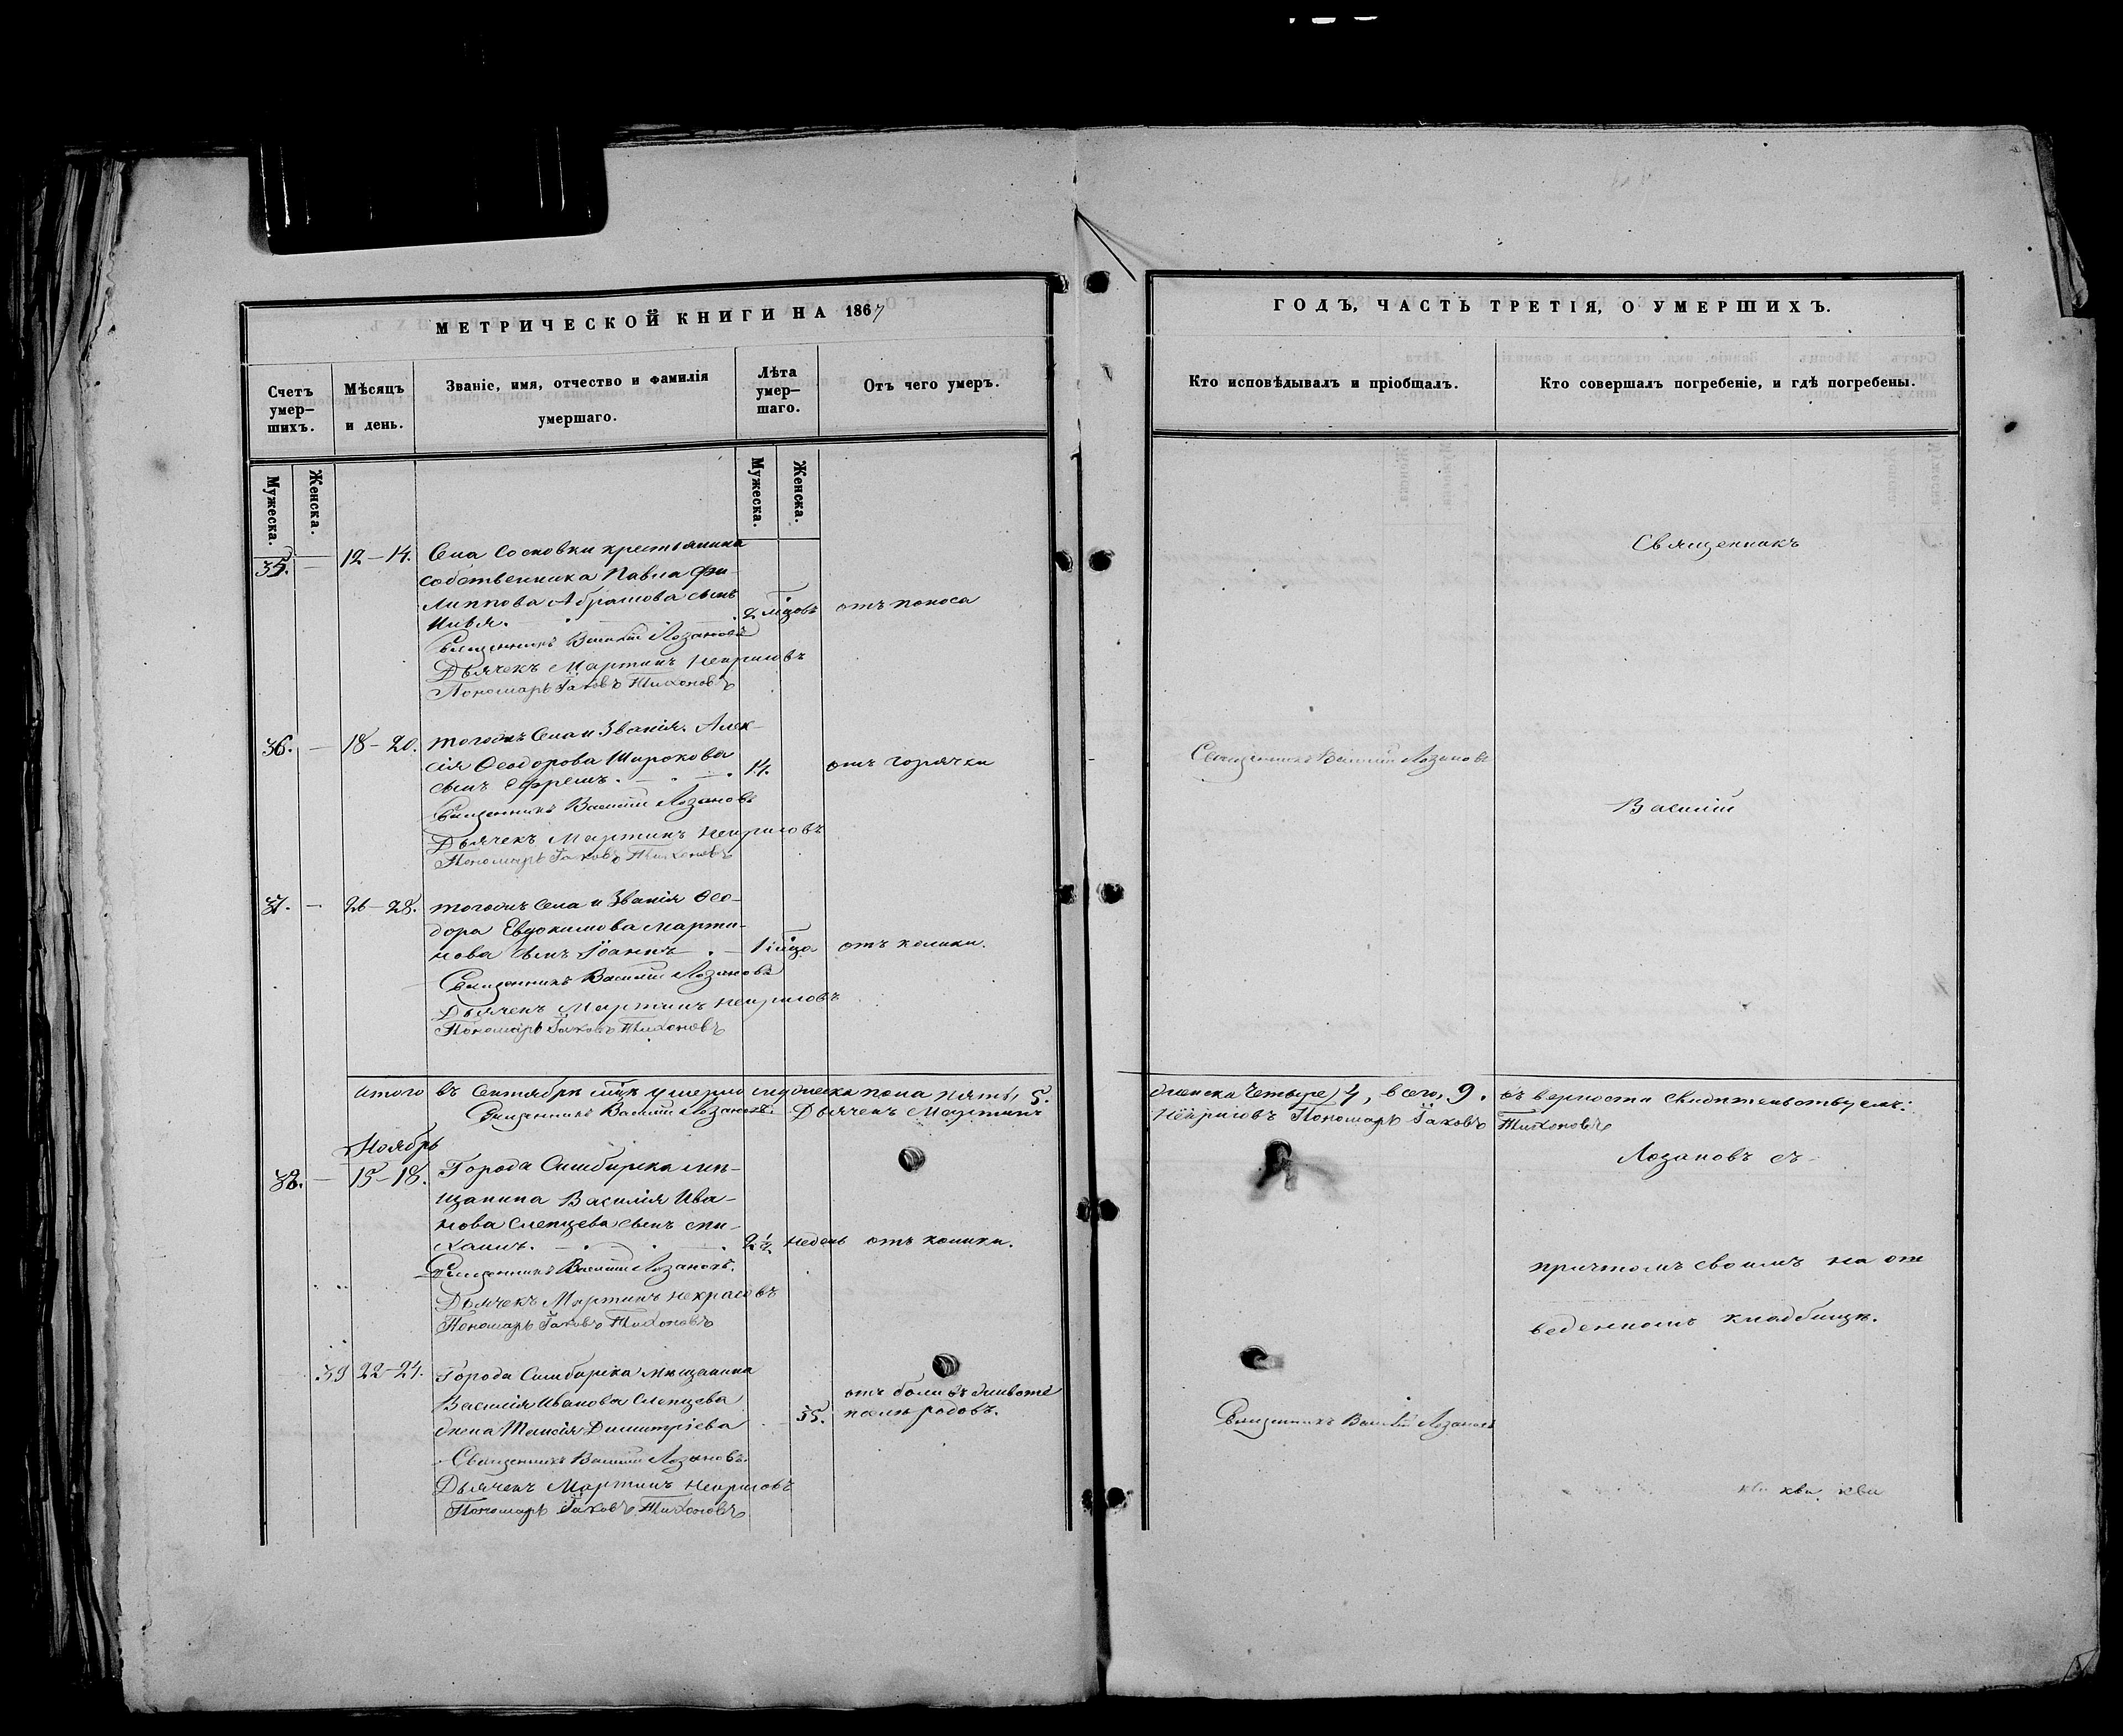 МЕТРИЧЕСКОЙ КНИГИ НА 1867
Счетъ умер–шихъ.
Мѣсяцъ и день.
Званіе, имя, отчество и фамилія умершаго.
Лѣта умер–шаго.
Отъ чего умеръ.
Мужеска.
Женска.
Мужеска.
Женска.
35. — 12–14. Села Сосновки крестьянина
собственника Павла Фи–
липпова Абрамова сынъ
Илья. 2 мцовъ отъ поноса
Священникъ Василій Лозановъ
Дьячекъ Мартинъ Некрасовъ
Пономарь Іаковъ Тихоновъ
36. — 18–20. тогожъ Села и Званія Алек–
сія Ѳеодорова Широкова
сынъ Ефремъ. 14. отъ горячки
Священникъ Василій Лозановъ
Дьячекъ Мартинъ Некрасовъ
Пономарь Іаковъ Тихоновъ
37. — 26–28. тогожъ Села и Званія Ѳео–
дора Евдокимова Марти–
нова сынъ Іоаннъ 1 мца отъ колики.
Священникъ Василій Лозановъ
Дьячекъ Мартинъ Некрасовъ
Пономарь Іаковъ Тихоновъ
итого въ Сентябрѣ мцѣ умерло мужеска пола пять, 5.
Священникъ Василій Лозановъ. Дьячекъ Мартинъ
Ноябрь
38. — 15–18. Города Симбирска мѣ–
щанина Василія Ива–
нова Слепцева сынъ Ми–
хаилъ. 2½ недель отъ колики.
Священникъ Василій Лозановъ.
Дьячекъ Мартинъ Некрасовъ
Пономарь Іаковъ Тихоновъ
39 22–24. Города Симбирска мѣщанина
Василія Иванова Слепцева
жена Таисія Димитріева 35. отъ боли въ животѣ
послѣ родовъ.
Священникъ Василій Лозановъ.
Дьячекъ Мартинъ Некрасовъ
Пономарь Іаковъ Тихоновъ
ГОДЪ, ЧАСТЬ ТРЕТІЯ, О УМЕРШИХЪ.
Кто исповѣдывалъ и пріобщалъ.
Кто совершалъ погребеніе, и гдѣ погребены.
Священникъ
Священникъ Василій Лозановъ
Василій
женска четыре, 4, всего, 9. въ верности свидѣтельствуемъ:
Некрасовъ Пономарь Іаковъ Тихоновъ
Лозановъ съ
причтомъ своимъ на от
веденномъ кладбищѣ.
Священникъ Василій Лозановъ